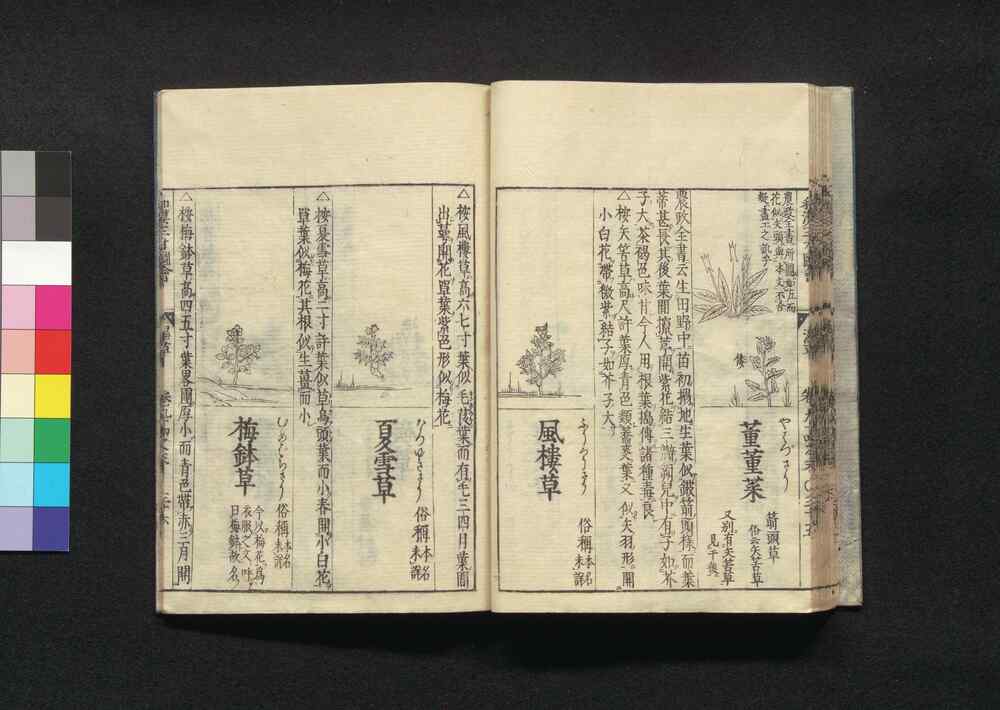 農政全書所圖如左而
花似矢頭與本文不合
疑畫工之訛乎
董董菜
やはづさう
箭頭草
俗云矢筈草
又別有矢筈草
見于奧
農政全書云生田野中苗初搨地生葉似鈹箭頭樣而葉
蒂甚長其後葉間攛葶開紫花結三瓣蒴兒中有子如芥
子大茶褐色味甘今人用根葉搗傅諸種毒良
△按矢筈草高尺許葉厚青色類蓍葉葉又似矢羽形開
小白花帶微紫結子如芥子大
風樓草
ふうろさう
俗稱
本名
未詳
△按風樓草高六七寸葉似毛茛葉而有毛三四月葉間
出莖開花單葉紫色形似梅花
夏雪草
なつゆきさう
俗稱
本名
未詳
△按夏雪草高二寸許葉似草烏頭葉而小春開小白花
單葉似梅花其根似生薑而小
梅鉢草
むめばちさう
俗稱
本名
未詳
今以梅花爲
衣服之文呼
曰梅鉢故名
△按梅鉢草高四五寸葉畧團厚小而青色帶赤三月開